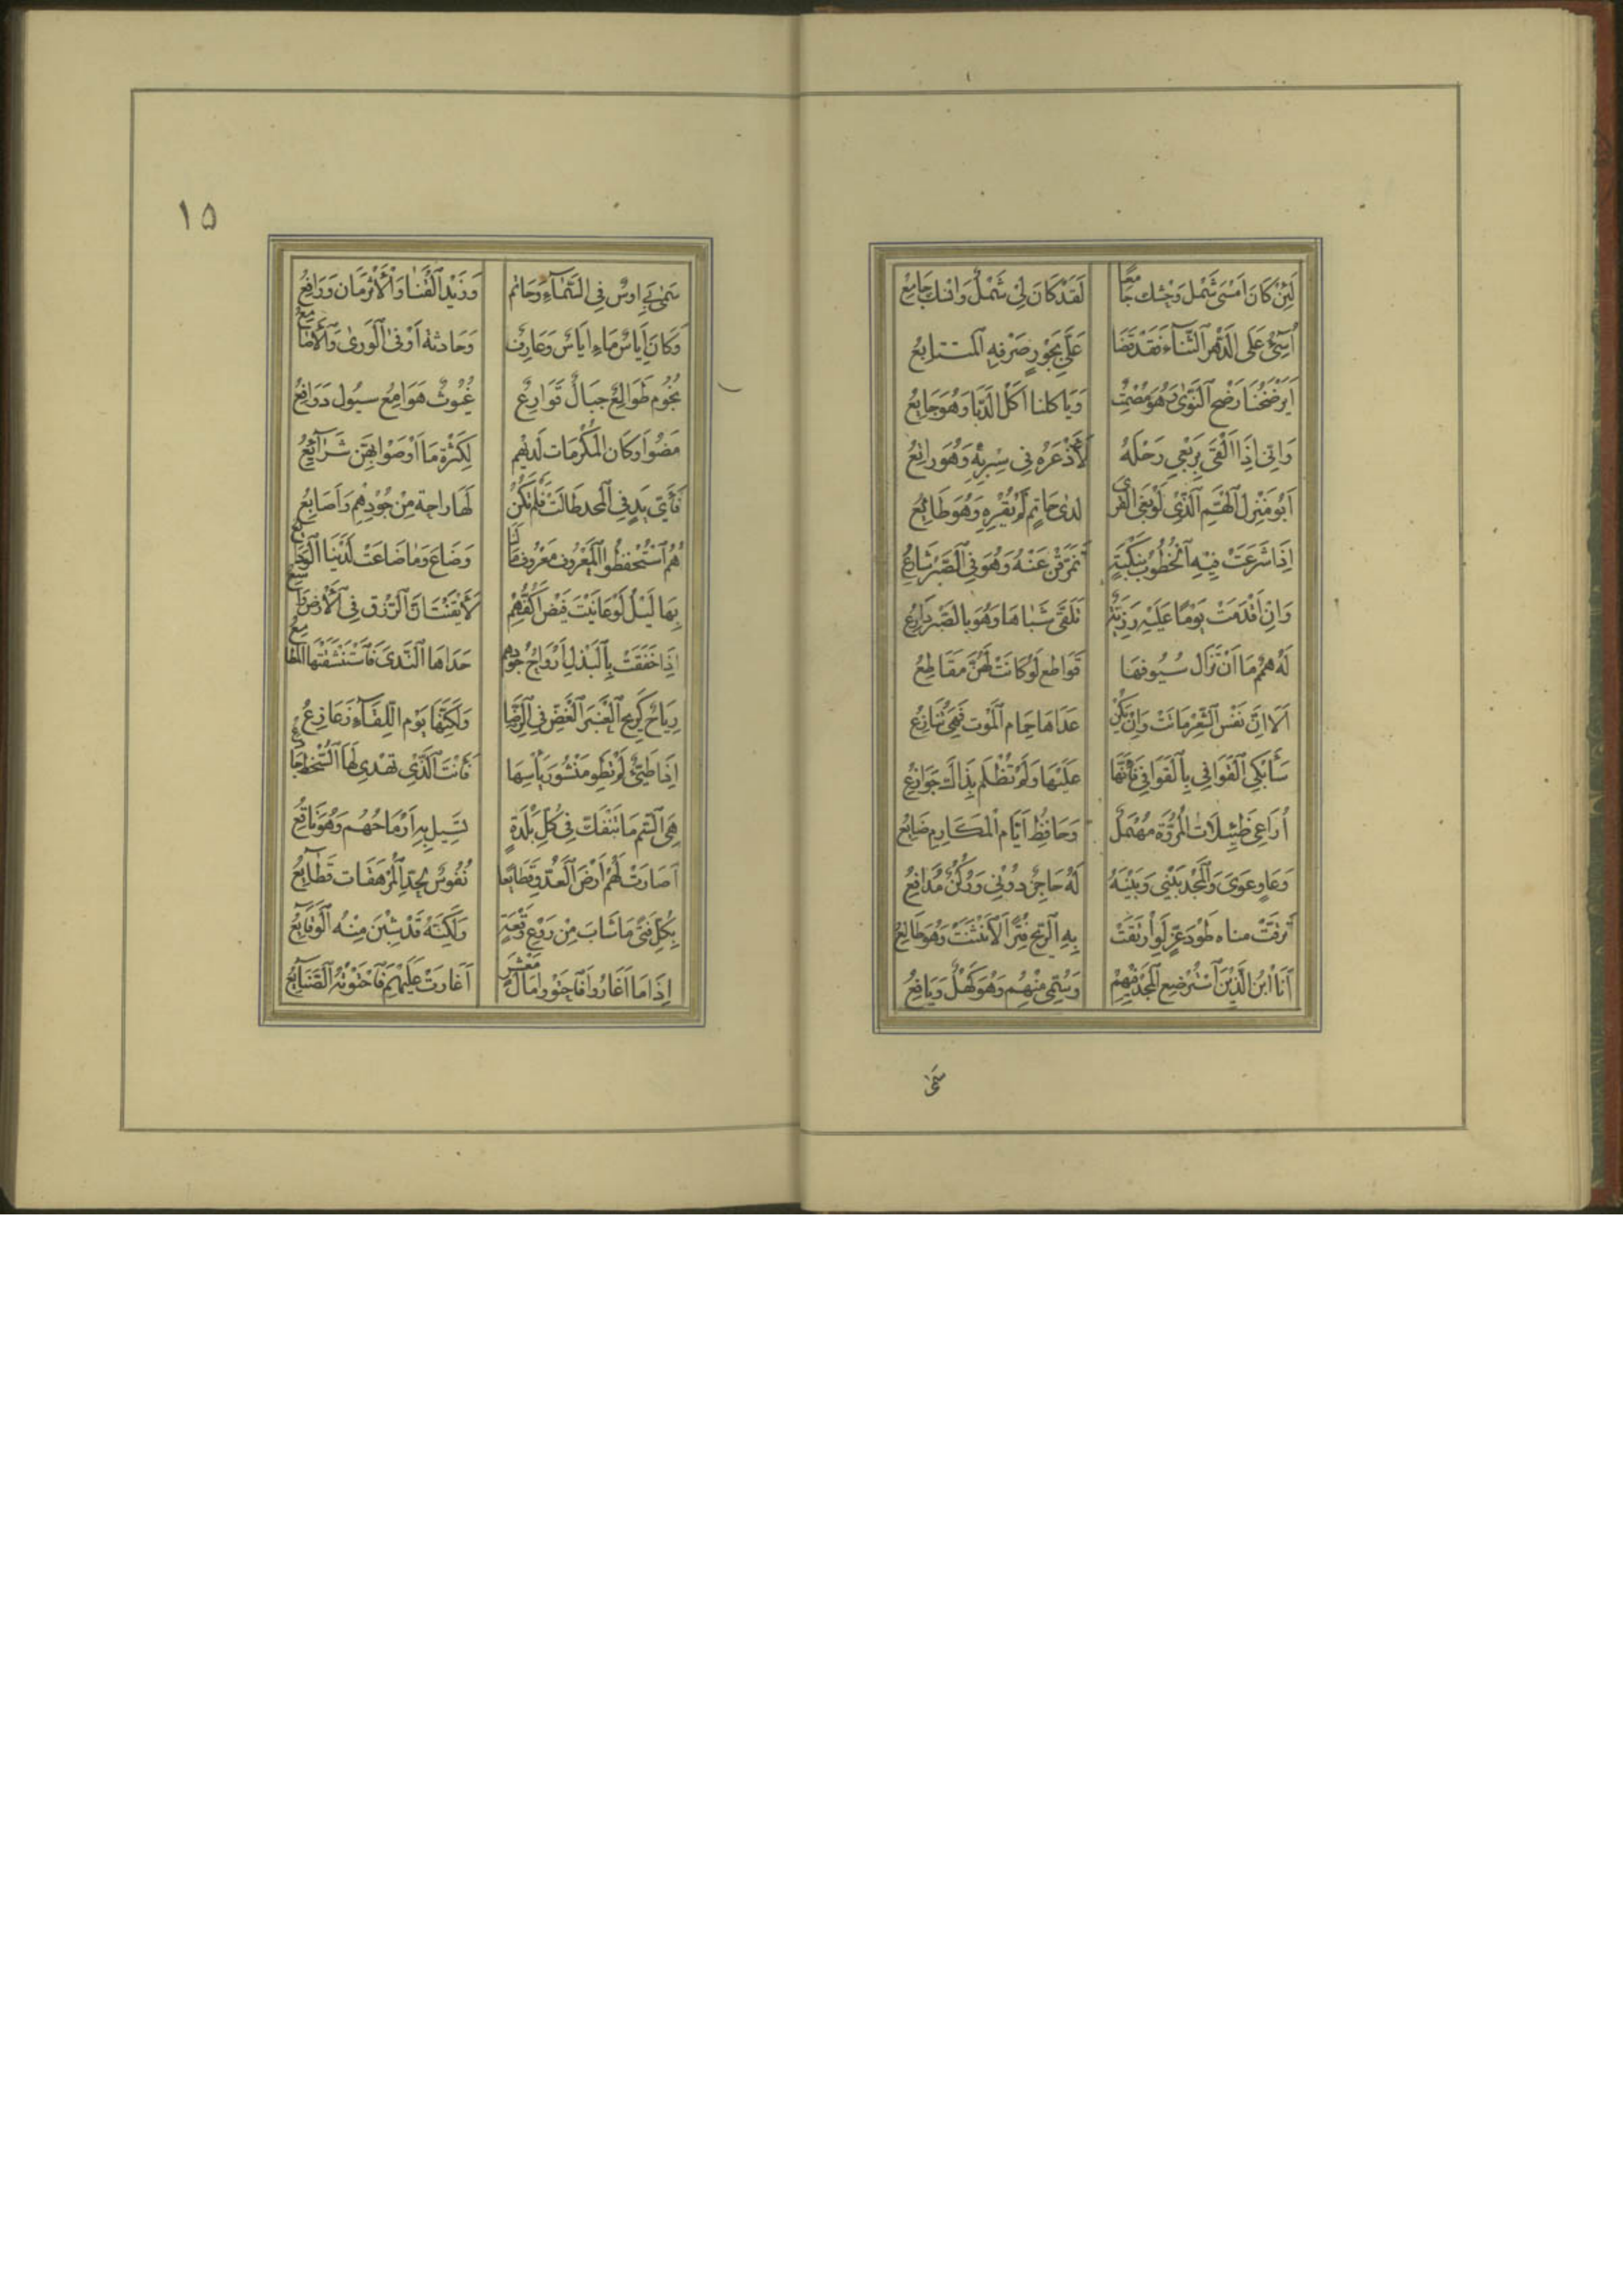 لَئِنْ كَانَ اَمْسَى شَمْلُ وَحْشِكَ جَامِعًا لَقَدْ كَانَ لِى شَمْلٌ وَاُنْسُكَ جَامِعُ
اُسِیْئُ عَلَى الدَّهْرِ الثَّنَاءَ فَقَدْ قَضَا عَلَىَّ بِجَوْرٍ صَرْفُهُ الْمُتَتَابِعُ
اَيَرْضَخُنَا رَضْخَ النَّوَىٰ وَهْوَ مُصْمِتٌ وَيَاكلنا اَكْلَ الدَّبَا وَهُوَ جَايِعُ
وَاِنِّى اِذَا اَلْقَى بِرَبْعِي رَحْلَهُ لَأَذْعَرُهُ فِى سِرْبِهِ وَهُوَ رَاتِعُ
اَبُو مَنْزِلِ الْهَمِّ الَّذِى لَوْ بَغَى الْقِرَى لدىٰ حَاتِمٍ لَمْ يُقْرِهِ وَهُوَ طَائِعُ
اِذَا شَرَعَتْ فِيْهِ الْخُطُوْبُ بِنَكْبَةٍ تَمَزَّقْنَ عَنْهُ وَهُوَ فِى الصَّبْرِ شَارِعُ
وَاِنْ اَقْدَمَتْ يَوْمًا عَلَيْهِ رَزِيَّةٌ تَلَقَّى شَبَاهَا وَهُوَ بِالصَّبْرِ دَارِعُ
لَهُ هِمَمٌ مَا اَنْ تَزَال سُيُوفُهَا قَوَاطِع لَوْ كَانَتْ لَهُنَّ مَقَاطِعُ
اَلَا اِنَّ نَفْسَ الشِّعْرِ مَاتَتْ وَاِنْ يَكُنْ عَدَاهَا حِمَام الْمَوْت فَهِىَ تُنَازِعُ
سَأَبْكِى الْقَوَافِى بِالْقَوَافِى فَاِنَّهَا عَلَيْهَا وَلَمْ تَظْلِم بِذَاكَ جَوَازِعُ
اُرَاعِى مُهْمَلٌ وَحَافِظُ اَيَّامِ الْمَكَارِمِ ضَايِعُ
وَعَاوٍ عَوَى وَالْمَجْدُ بَيْنِي وَبَيْنَهُ لَهُ حَاجِزٌ دُوْنِي وَرُكْنٌ مُدَافِعُ
تَرَقَّتْ مناه طَوْدَ عِزٍّ لَوِ ارْتَقَتْ بِهِ الرِّيحُ فِتْرًا لَانْثَنَتْ وَهُوَ ظَالِعُ
اَنَا ابْنُ الَّذِيْنَ اسْتُرْضِعَ الْمَجْدُ فِيْهِمُ وَسُمِّىَ مِنْهُم وَهُوَ كَهْلٌ وَيَافِعُ
سَمَىٰ
١٥
سَمٰى بِى اوسٌ فِى السَّمَاءِ وَحَاتِم وَزَيْد الْقَنَا وَالْأَثْرَمَان وَرَافِعُ
وَكَانَ اَيَاسٌ مَاءِ اَيَاسٌ وَعَارِف وَحَادثةُ اَوْفىٰ الْوَرىٰ وَالْأَصَامِعُ
نُجُوْم طَوَالِعٌ جِبَالٌ قَوَارِعٌ غُيُوثٌ هَوَامِعُ سيُول دَوَافِعُ
مَضَوْا وَكَان الْمَكْرُمَات لَدَيْهِم لِكَثْرَةِ مَا اَوْصَوْا بِهِنَّ شَرَايِعُ
فَأَيُّ يَدٍ فِى الْمَجْدِ طَالَتْ فَلَمْ تَكُنْ لَهَا رَاحَةٌ مِنْ جُوْدِهِمْ وَاَصَابِعُ
هُمُ اسْتُحْفِظُوا الْمَعْرُوفَ مَعْرُوفَ مَالِنَا وَضَاعَ وَمَا ضَاعَتْ لَدَيْنَا الْوَدَايِعُ
بَهَالَيْلُ لَوْ عَايَنْتَ فَيْضَ اَكُفِّهِمْ لَأَيْقَنْتَ اَنَّ الرِّزْقَ فِى الْأَرْضِ وَاسِعُ
اِذَا خَفَقَتْ بِالْبَذْلِ اَرْوَاحُ جُوْدِهِم حَدَاهَا النَّدَىٰ فَاسْتَنْشَقَتْهَا الْمَطَامِعُ
رِيَاحٌ كَرِيحِ الْعَنْبَرِ الْغَضِّ فِى الرِّضَا وَلَكِنَّهَا يَوْمَ اللِّقَاءِ زَعَازِعُ
اِذَا طَيِّئٌ لَمْ تَطْوِ مَنْشُوْرَ بَأْسِهَا فَأَنْتَ الَّذِى تهْدِى لَهَا السُّخْطَ
هِىَ السَّمّ مَا تَنْفَكّ فِى كُلِّ بَلْدَةٍ تَسِيْل بِهِ اَرْمَاحُهُم وَهُوَ نَاقِعُ
اَصَارَتْ لَهُمْ اَرْضَ الْعَدُوِّ قَطَايِعًا نُفُوْسٌ بِحَدِّ الْمُرْهَفَات قَطَايِعُ
بِكُلِّ فَتًى مَا شَابَ مِنْ رَوْعِ وَقْعَةٍ وَلَكِنَّهُ قَدْ شِبْنَ مِنْهُ الْوَقَايِعُ
اِذَا مَا اَغَارُوا فَاحْتَوَوْا مَالَ مَعْشَرٍ اَغَارَتْ عَلَيْهِم فَاحْتَوَتْهُ الصَّنَايِعُ